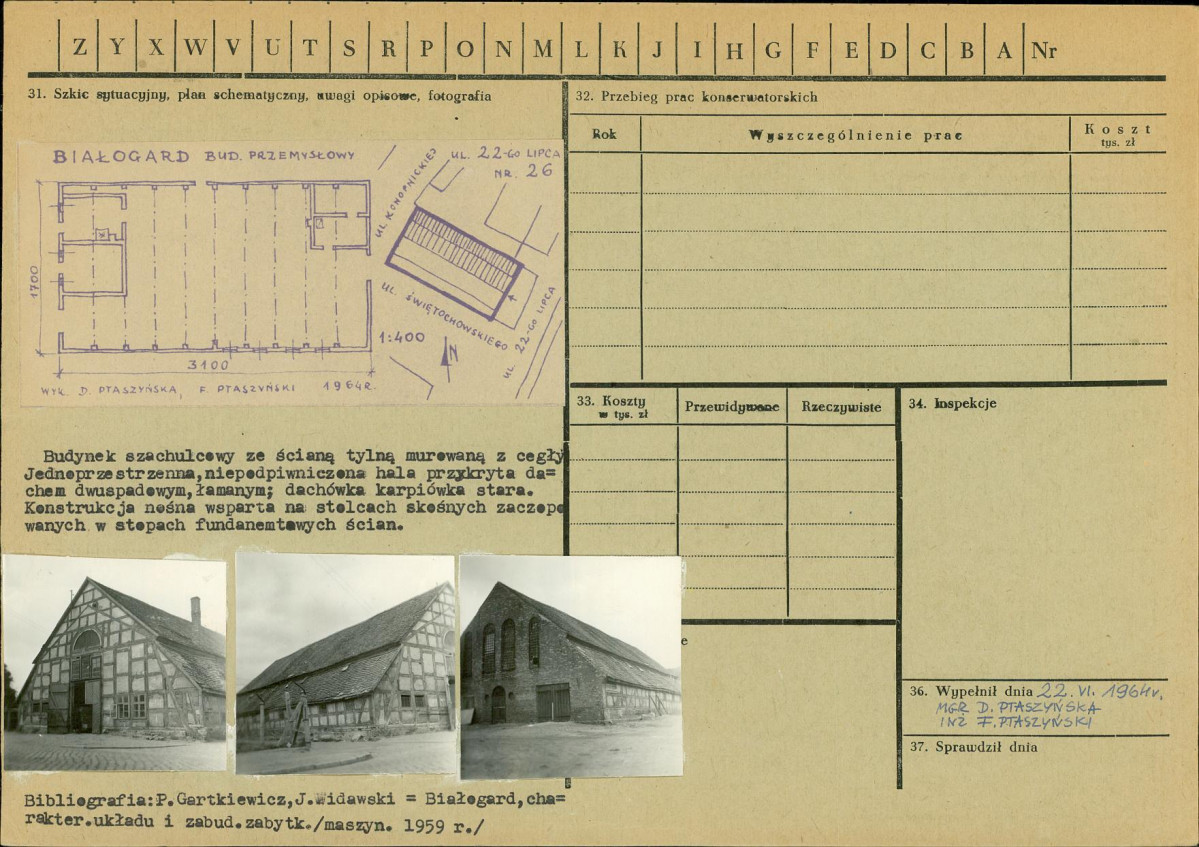 Z Y X W V U T S R P O N M L K J I H G F E D C B A Nr
31. Szkic sytuacyjny, plan schematyczny, uwagi opisowe, fotografia
BIAŁOGARD BUD. PRZEMYSŁOWY
UL. 22-GO LIPCA
NR. 26
UL. KONOPNICKIEJ
UL. ŚWIĘTOCHOWSKIEGO
UL. 22-GO LIPCA
1700
3100
1:400
N
WYK. D. PTASZYŃSKA, F. PTASZYŃSKI 1964R.
Budynek szachulcowy ze ścianą tylną murowaną z cegły
Jednoprzestrzenna,niepodpiwniczona hala przykryta da=
chem dwuspadowym,łamanym; dachówka karpiówka stara.
Konstrukcja nośna wsparta na stolcach skośnych zaczepo
wanych w stopach fundanemtowych ścian.
Bibliografia:P.Gartkiewicz,J.Widawski = Białogard,cha=
rakter.układu i zabud.zabytk./maszyn. 1959 r./
32. Przebieg prac konserwatorskich
Rok
Wyszczególnienie prac
Koszt
tys. zł
33. Koszty
w tys. zł
Przewidywane
Rzeczywiste
34. Inspekcje
e
36. Wypełnił dnia 22. VI. 1964r.
MGR D. PTASZYŃSKA
INŻ F. PTASZYŃSKI
37. Sprawdził dnia